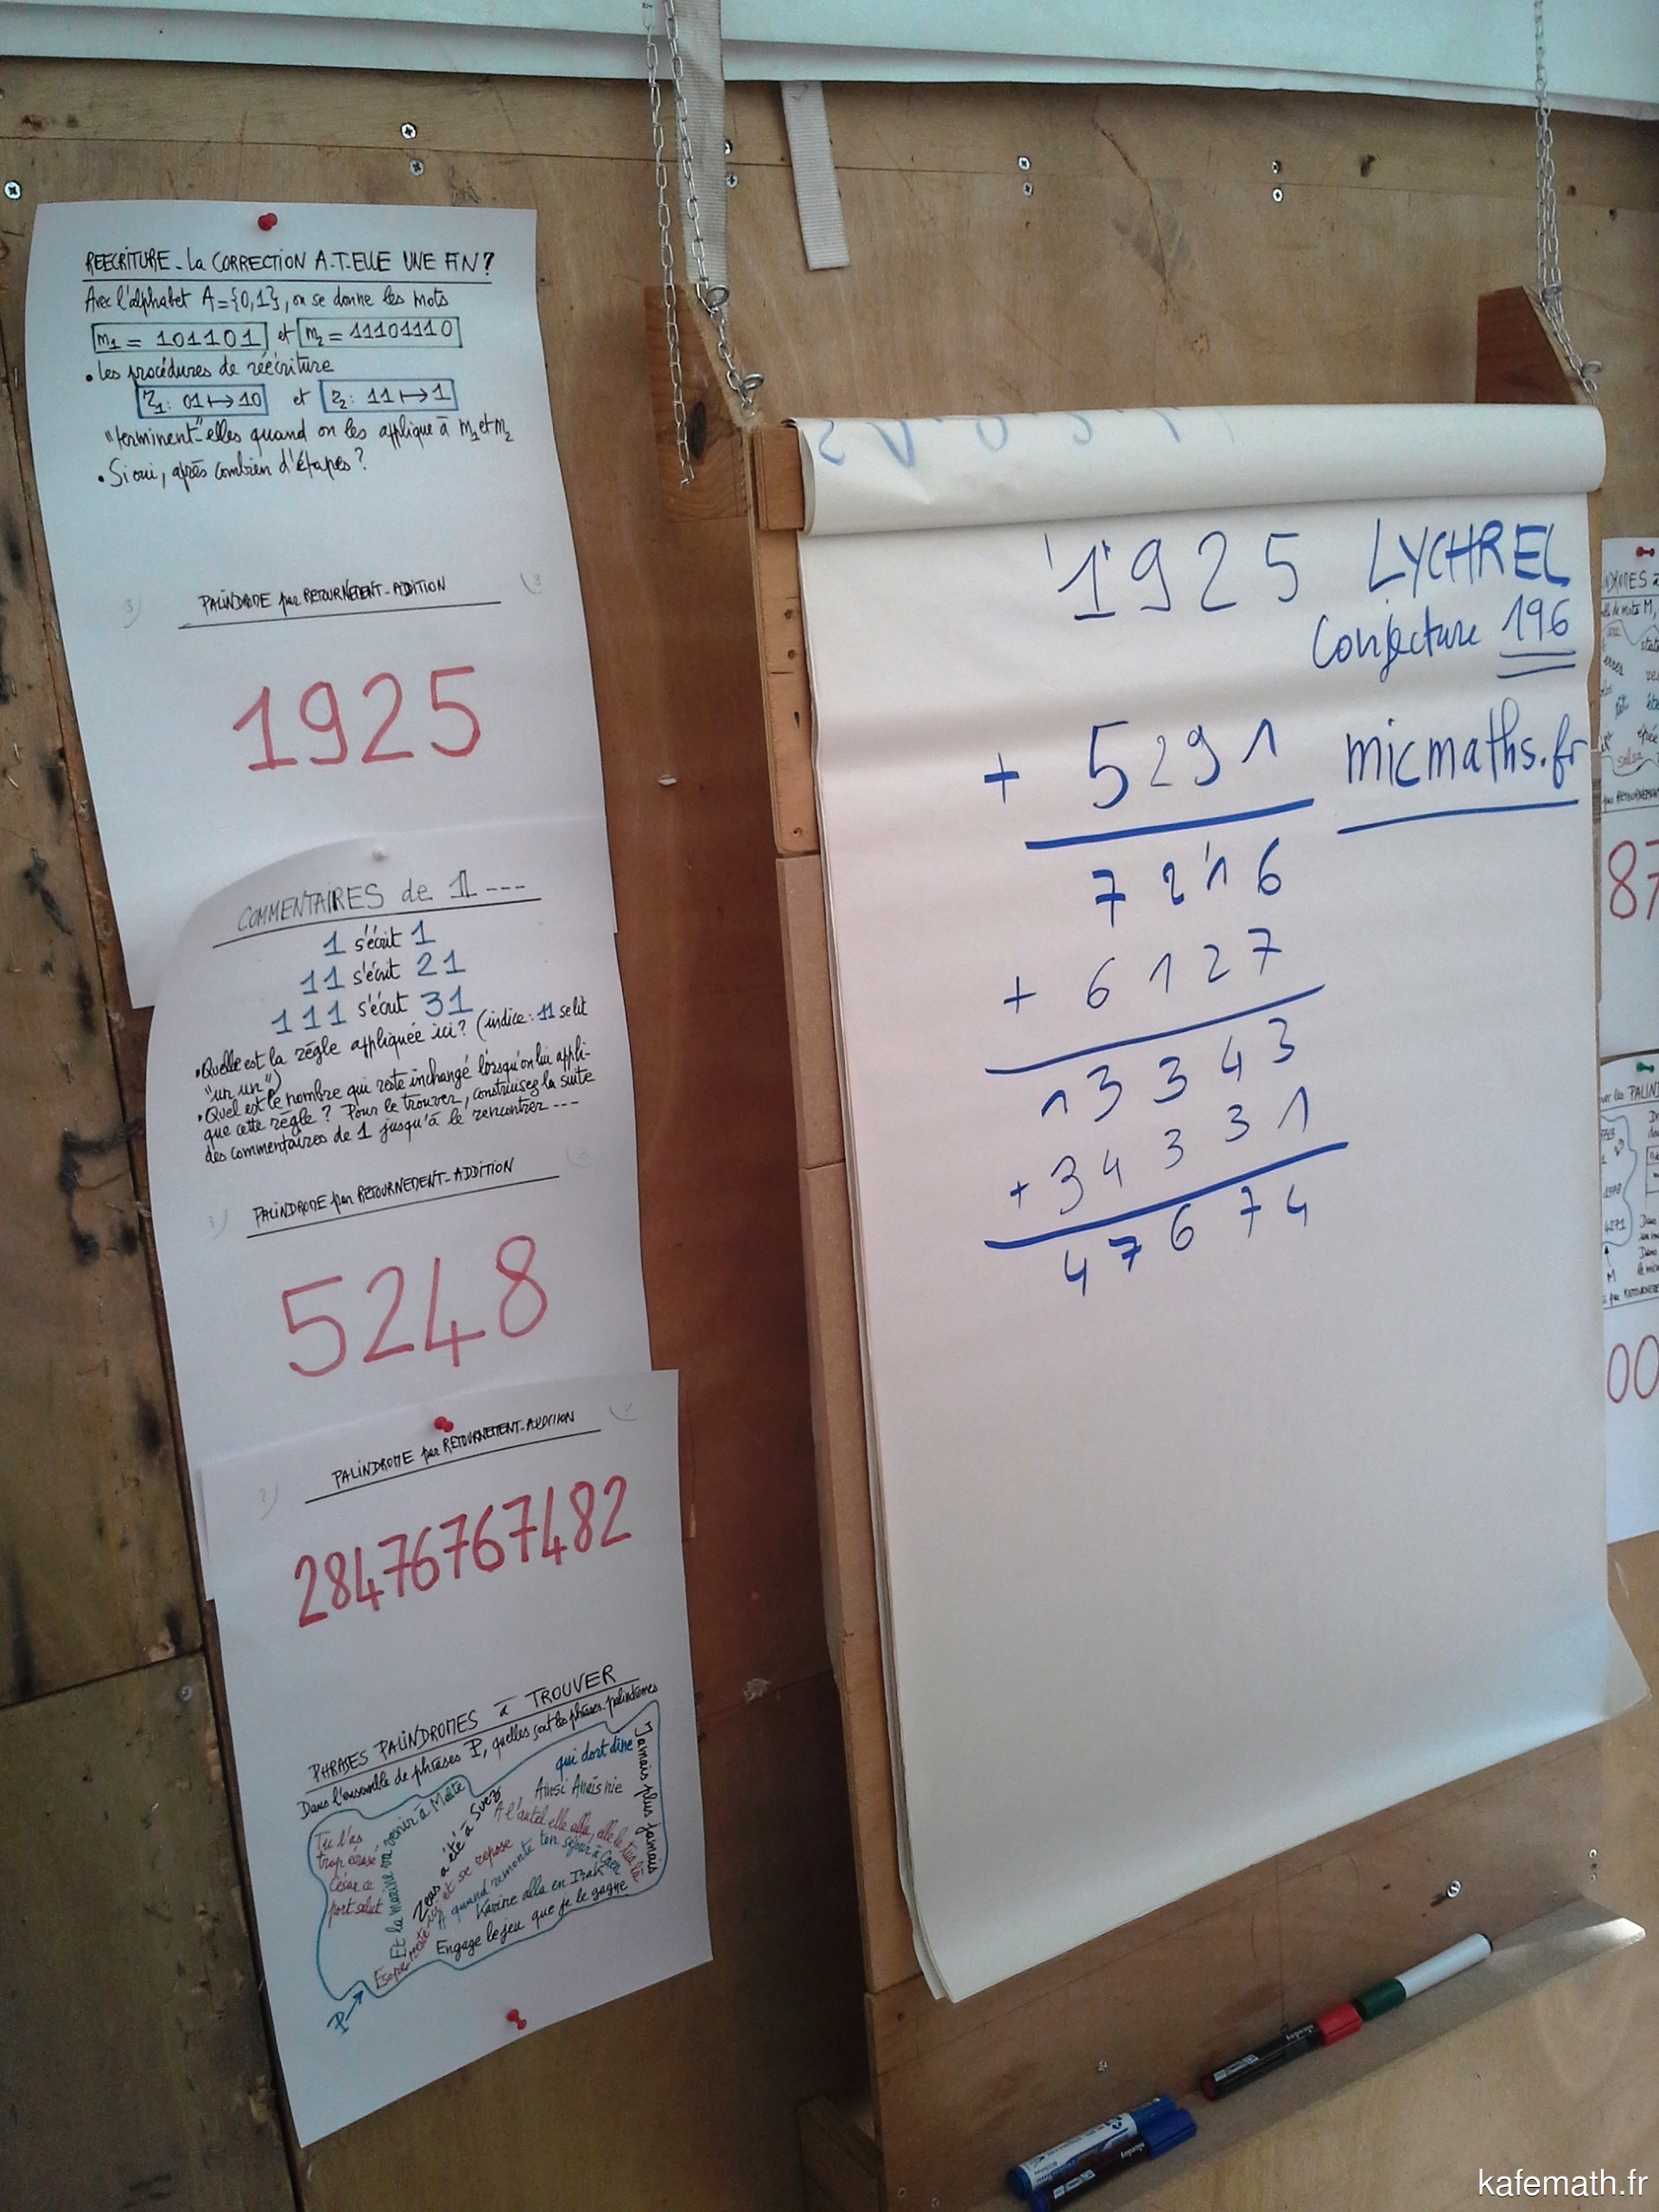 REECRITURE - La CORRECTION A-T-ELLE UNE FIN ?
Avec l'alphabet A = {0,1}, on se donne les mots
m1 = 101101 et m2 = 11101110
• Les procédures de réécriture
r1 : 01 ↦ 10 et r2 : 11 ↦ 1
"terminent"-elles quand on les applique à m1 et m2
• Si oui, après combien d'étapes ?
PALINDROME par RETOURNEMENT-ADDITION
1925
COMMENTAIRES de 1 ---
1 s'écrit 1
11 s'écrit 21
111 s'écrit 31
• Quelle est la règle appliquée ici ? (indice : 11 se lit
"un un")
• Quel est le nombre qui reste inchangé lorsqu'on lui appli-
que cette règle ? Pour le trouver, construisez la suite
des commentaires de 1 jusqu'à le rencontrer ---
PALINDROME par RETOURNEMENT-ADDITION
5248
PALINDROME par RETOURNEMENT-ADDITION
28476767482
PHRASES PALINDROMES à TROUVER
Dans l'ensemble de phrases P, quelles sont les phrases palindromes
qui dort dine
Jamais plus jamais
Ainsi Anaïs nie
Tu l'as
trop écrasé
César ce
port salut
Et la marine va venir à Malte
Zeus a été à Suez
A l'autel elle alla, elle le tua là
Esope reste ici et se repose
A quand remonte ton séjour à Caen
Karine alla en Irak
Engage le jeu que je le gagne
P
1925 LYCHREL
Conjecture 196
+ 5291 micmaths.fr
7216
+ 6127
13343
+ 34331
47674
87
00
kafemath.fr